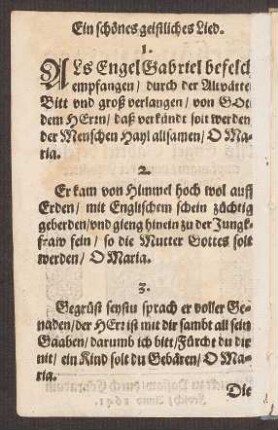 Ein schönes geistliches Lied.
1.
ALs Engel Gabriel befelch
empfangen / durch der Altvätter
Bitt vnd groß verlangen / von GOtt
dem HErrn / daß verkündt solt werden
der Menschen Hayl allsamen / O Ma-
ria.
2.
Er kam von Himmel hoch wol auff
Erden / mit Englischem schein züchtig
geberden / vnd gieng hinein zu der Jungk-
fraw fein / so die Mutter Gottes solt
werden / O Maria.
3.
Gegrüst seystu sprach er voller Ge-
naden / der HErr ist mit dir sambt all sein
Gaaben / darumb ich bitt / Fürcht du dir
nit / ein Kind solt du Gebären / O Ma-
ria.
Die